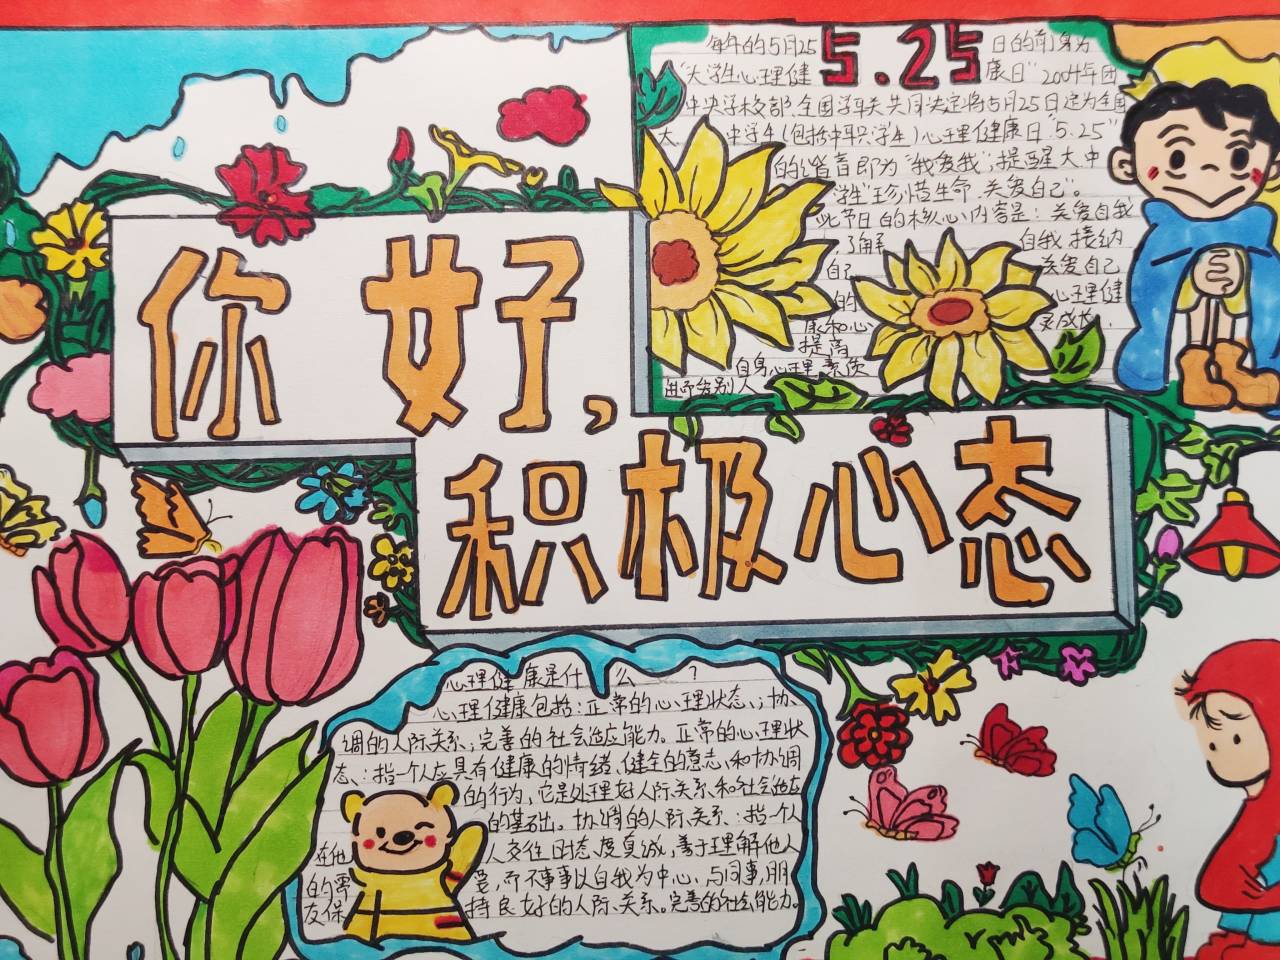 每年的5月25 5.25 日的前身为
"大学生心理健 康日"2004年团
中央学校部、全国学联共同决定将5月25日定为全国
大 中学生(包括中职学生)心理健康日"5.25"
的谐音即为"我爱我",提醒大中
学生"珍惜生命,关爱自己"。
此节日的核心内容是:关爱自我
,了解 自我,接纳
自己 关爱自己
的 心理健
康和心 灵成长,
提高
自身心理素质
别人
你好,
积极心态
心理健康是什么?
心理健康包括:正常的心理状态、;协
调的人际关系;完善的社会适应能力。正常的心理状
态、:指一个人应具有健康的情绪、健全的意志、和协调
的行为,它是处理好人际关系和社会适应
的基础。协调的人际关系:指一个人
在他人交往时态度真诚,善于理解他人
的需要,而不事事以自我为中心,与同事,朋
友保持良好的人际关系。完善的社会能力。